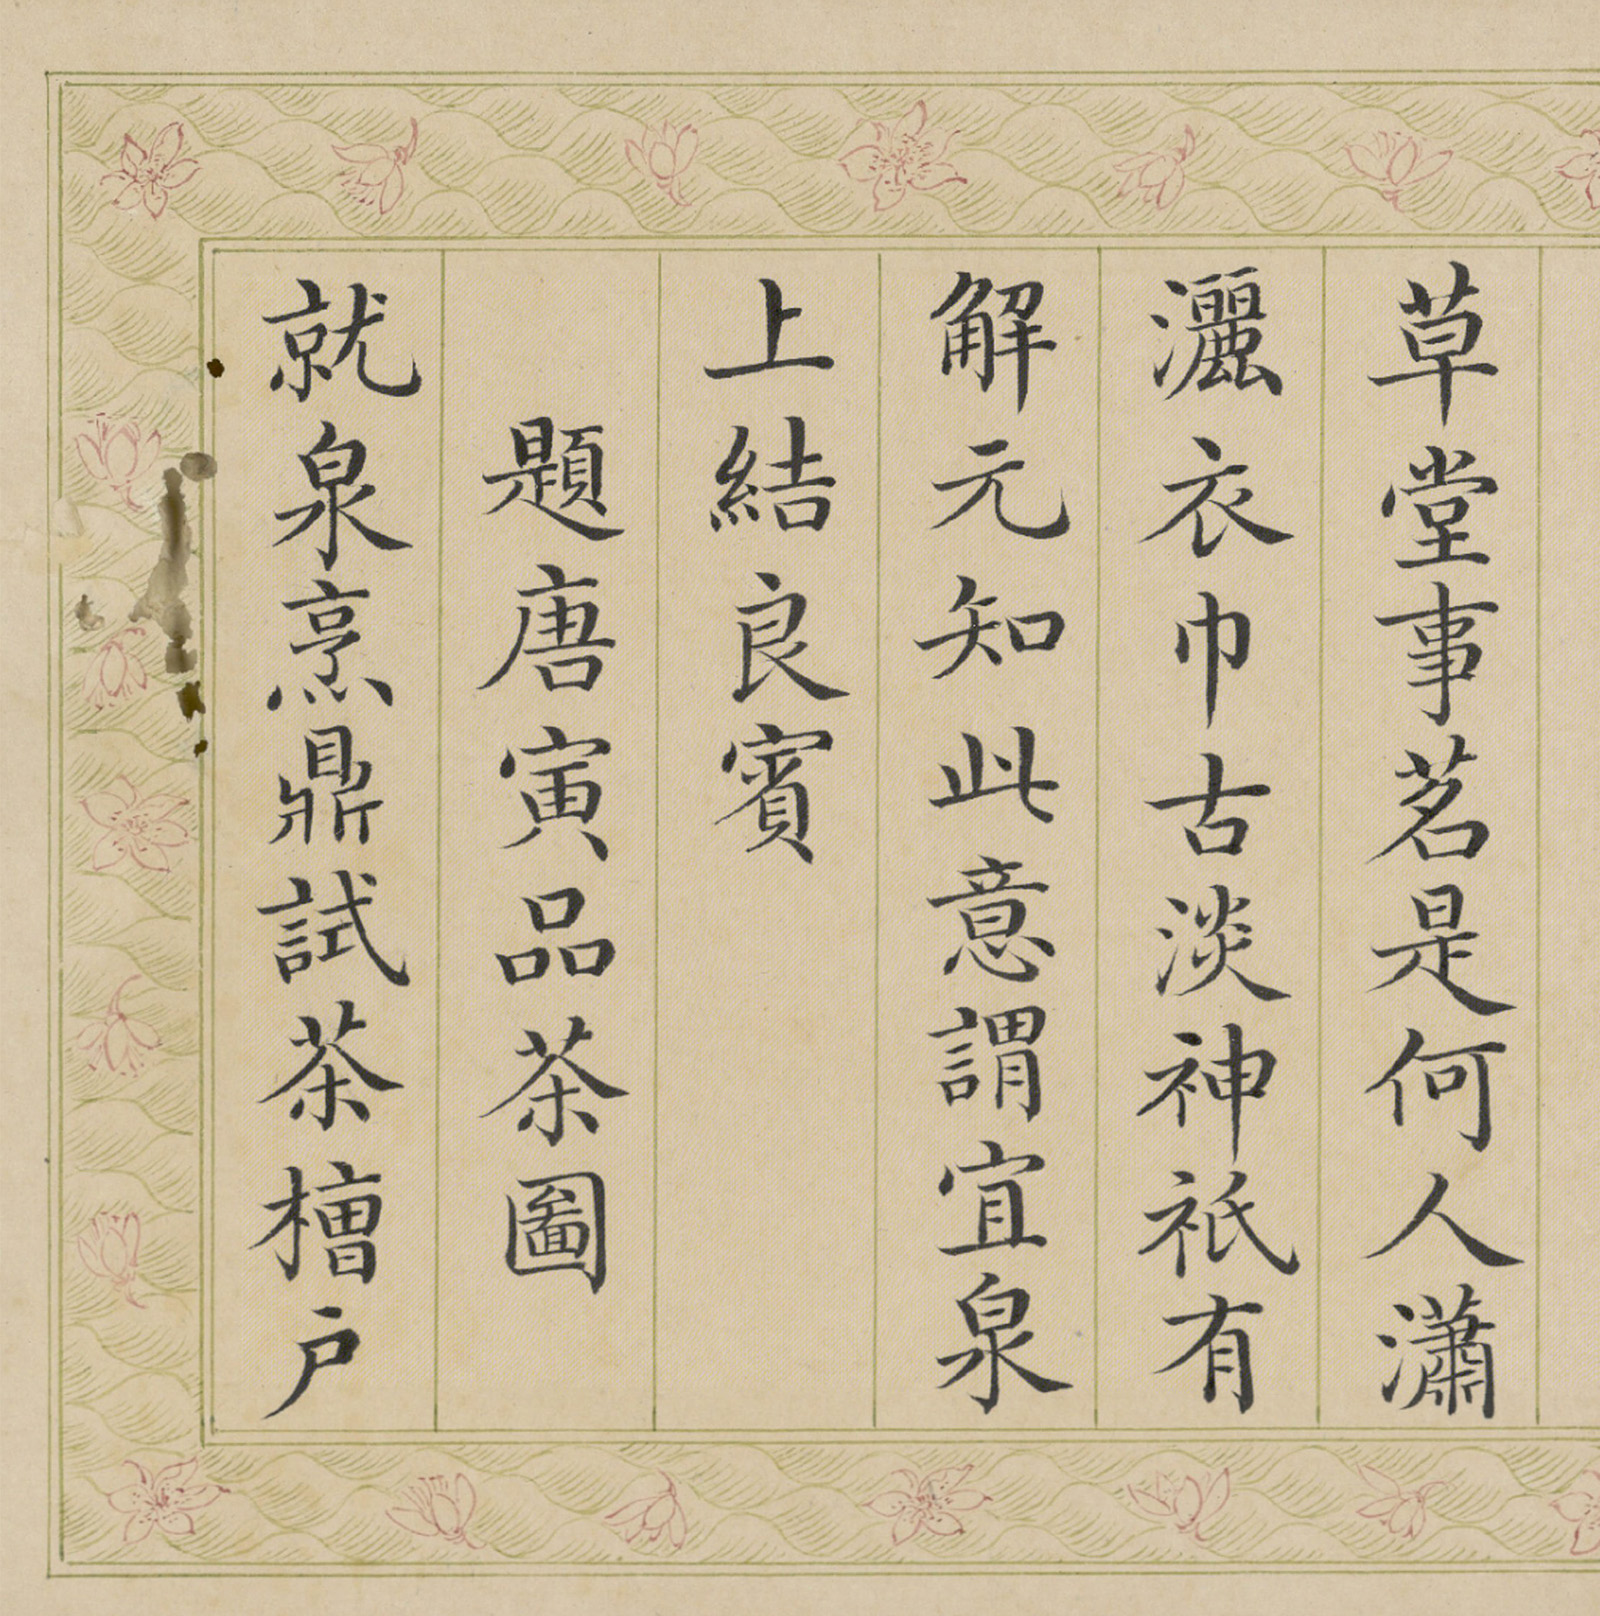 草堂事茗是何人瀟
灑衣巾古淡神祇有
解元知此意謂宜泉
上結良賓
題唐寅品茶圖
就泉烹鼎試茶樐戶